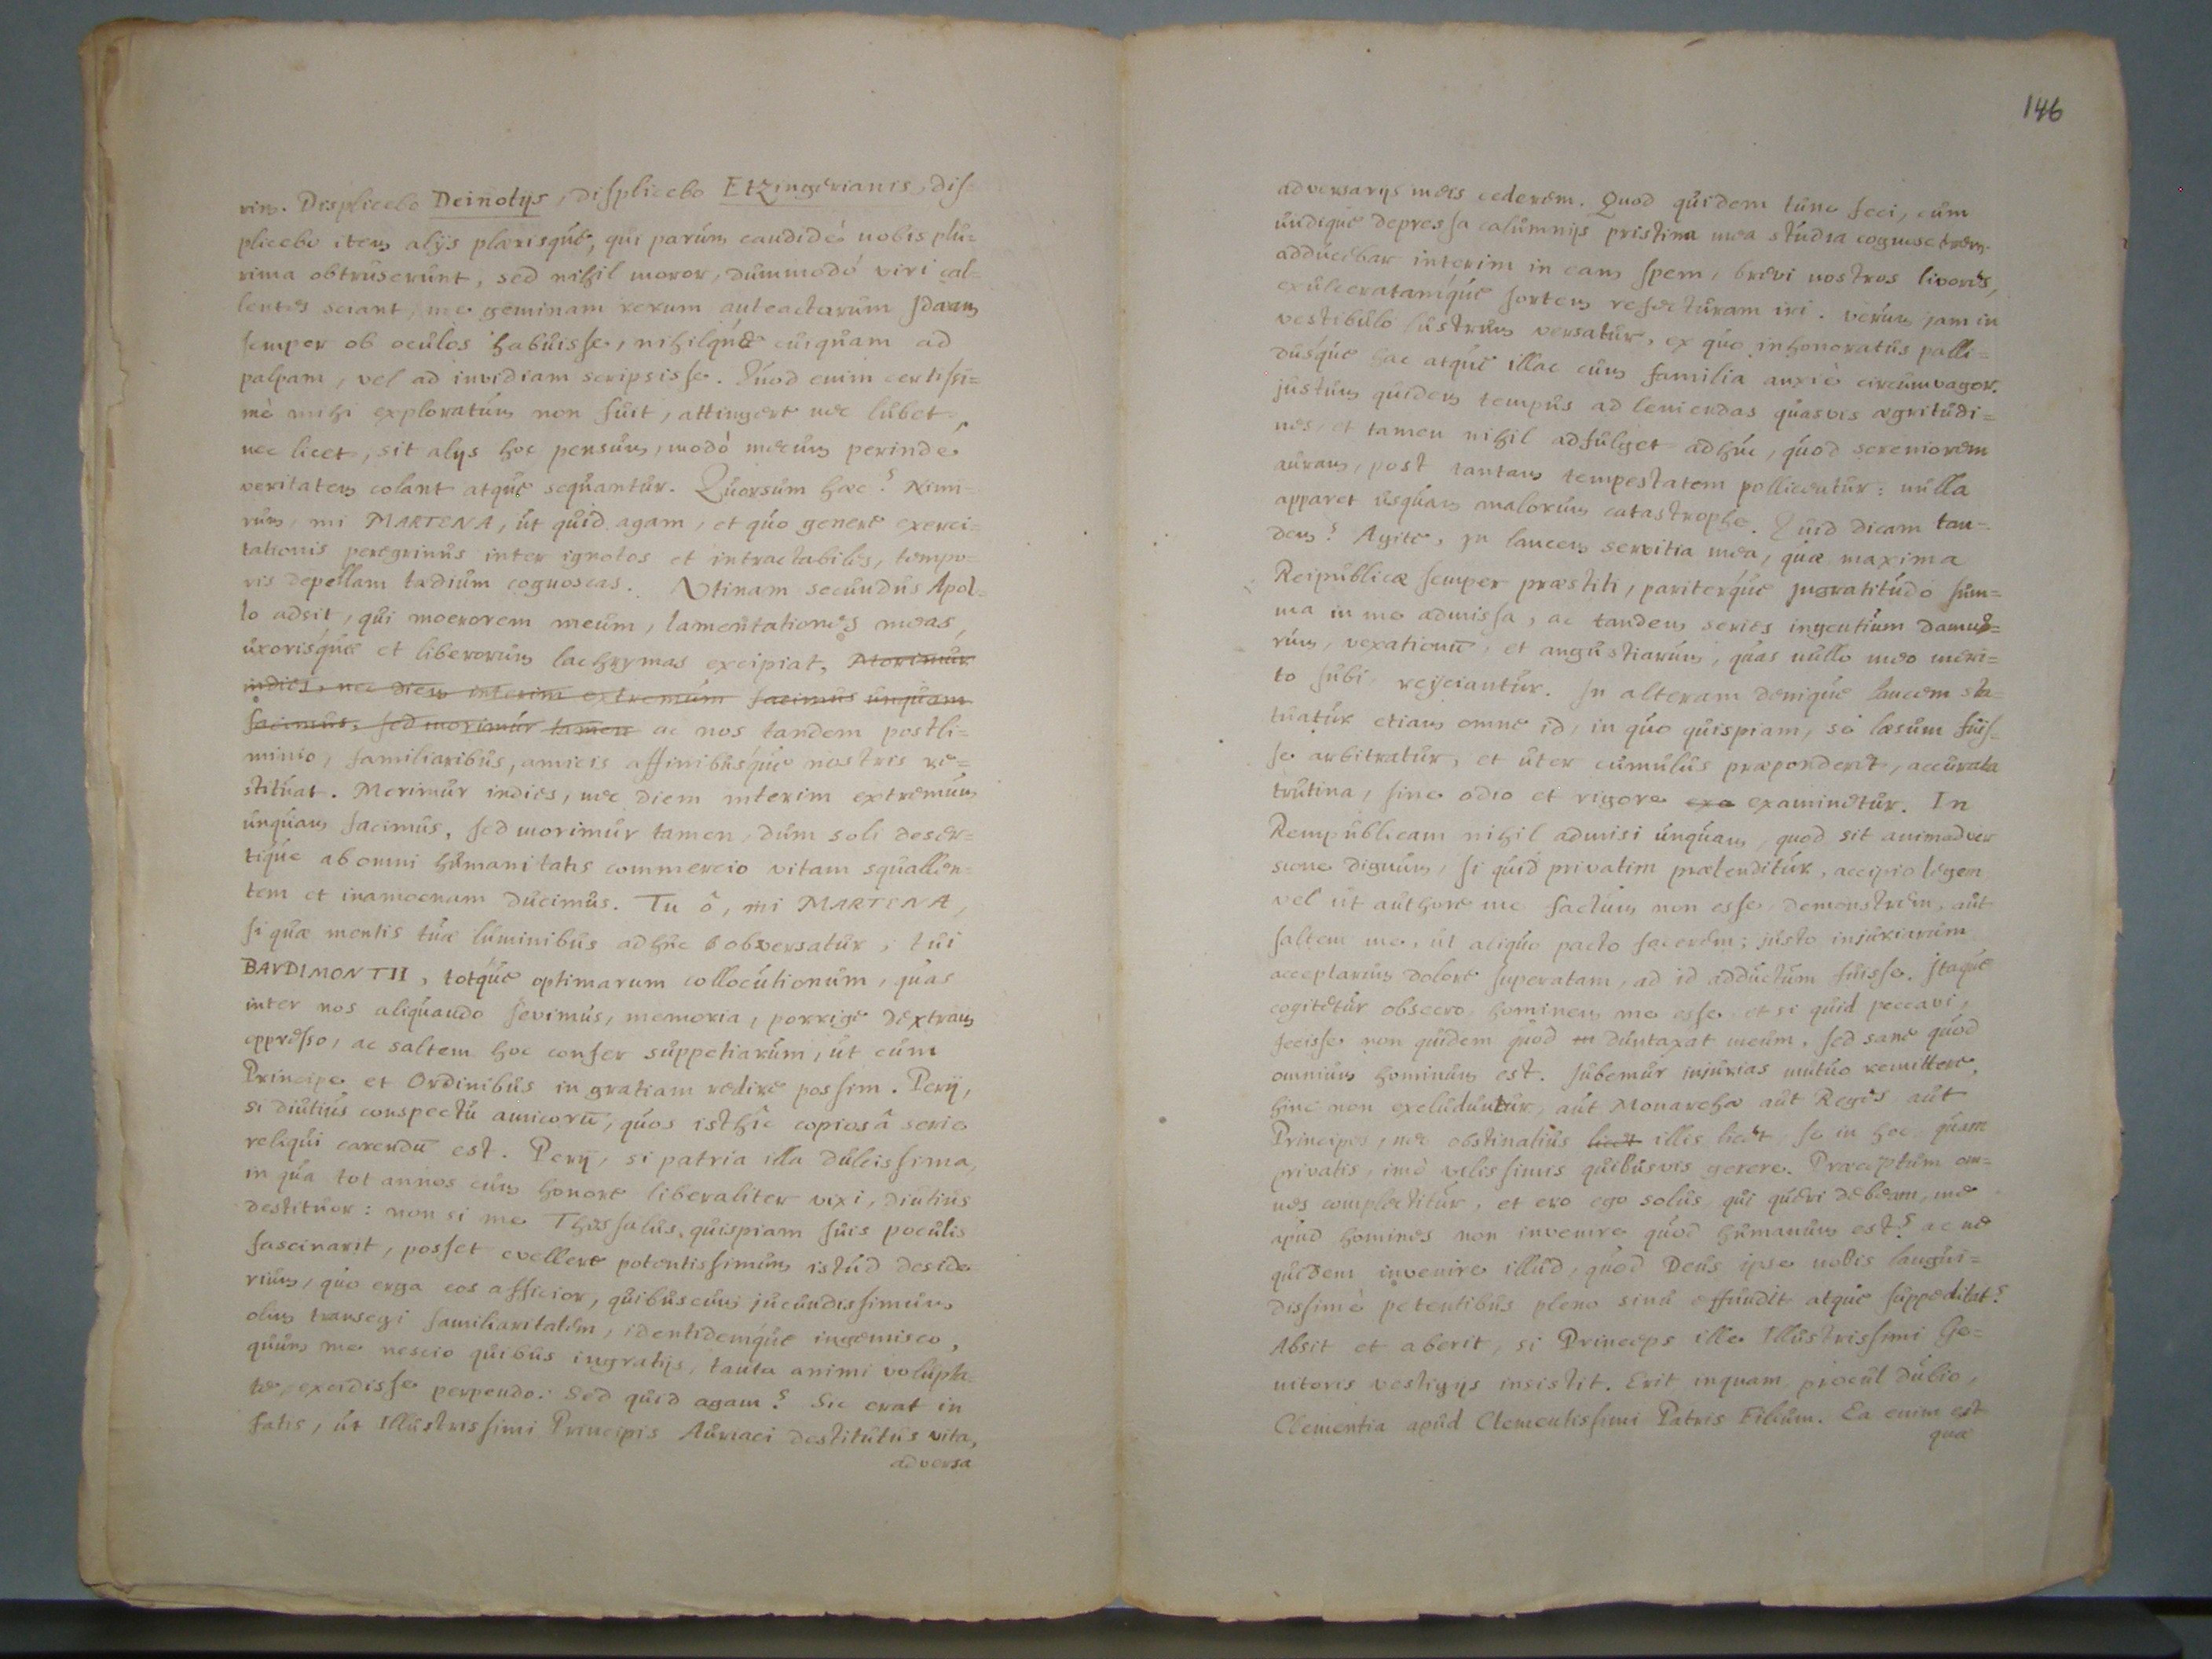 rim. Displicebo Deinotijs, displicebo Etzingerianis, dis-
plicebo item alijs plærisque, qui parum candidè nobis plu-
rima obtruserunt, sed nihil moror, dummodò viri cal-
lentes sciant, me geminam rerum anteactarum Idæam
semper ob oculos habuisse, nihilque cuiquam ad
palpam, vel ad invidiam scripsisse. Quod enim certissi-
mè mihi exploratum non fuit, attingere nec lubet,
nec licet, sit alijs hoc pensum, modò mecum perinde
veritatem colant atque sequantur. Quorsum hæc? Nimi-
rum, mi MARTENA, ut quid agam, et quo genere exerci-
tationis peregrinus inter ignotos et intractabiles, tempo-
ris depellam tædium cognoscas. Utinam secundus Apol-
lo adsit, qui moerorem meum, lamentationes meas,
uxorisque et liberorum lachrymas excipiat, Morimur
indies, nec diem interim extremum facimus unquam
facimus, sed morimur tamen ac nos tandem postli-
minio, familiaribus, amicis affinibusque nostris re-
stituat. Morimur indies, nec diem interim extremum
unquam facimus, sed morimur tamen, dum soli deser-
tique ab omni humanitatis commercio vitam squallen-
tem et inamoenam ducimus. Tu ô, mi MARTENA,
si quæ mentis tuæ luminibus adhuc obversatur, tui
BAUDIMONTII, totque optimarum collocutionum, quas
inter nos aliquando sevimus, memoria, porrige dextram
oppresso, ac saltem hoc confer suppetiarum, ut cum
Principe et Ordinibus in gratiam redire possim. Perij,
si diutius conspectu amicorū, quos isthîc copiosâ serie
reliqui carendū est. Perij, si patria illa dulcissima,
in qua tot annos cum honore liberaliter vixi, diutius
destituor: non si me Thessalus quispiam suis poculis
fascinarit, posset evellere potentissimum istud deside-
rium, quo erga eos afficior, quibuscum jucundissimam
olim transegi familiaritatem, identidemque ingemisco,
quum me nescio quibus ingratijs, tanta animi volupta-
te, excidisse perpendo. Sed quid agam? Sic erat in
fatis, ut Illustrissimi Principis Auriaci destitutus vita,
adversa
146
adversarijs meis cederem. Quod quidem tunc feci, cum
undique depressa calumnijs pristina mea studia cognoscerem.
adducebar interim in eam spem, brevi nostros livores,
exulceratamque sortem refecturam iri. verum jam in
vestibulo lustrum versatur, ex quo inhonoratus palli-
dusque hac atque illac cum familia anxiè circumvagor.
justum quidem tempus ad leniendas quasvis ægritudi-
nes, et tamen nihil adfulget adhuc, quod sereniorem
auram, post tantam tempestatem polliceatur: nulla
apparet usquam malorum catastrophe. Quid dicam tan-
dem? Agite, In lancem servitia mea, quæ maxima
Reipublicæ semper præstiti, pariterque Ingratitudo sum-
ma in me admissa, ac tandem series ingentium damno-
rum, vexationū, et angustiarum, quas nullo meo meri-
to subi, reijciantur. In alteram denique lancem sta-
tuatur etiam omne id, in quo quispiam, se læsum fuis-
se arbitratur, et uter cumulus præponderet, accurata
trutina, sine odio et rigore exa examinetur. In
Rempublicam nihil admisi unquam, quod sit animadver
sione dignum, si quid privatim prætenditur, accipio legem
vel ut authore me factum non esse demonstrem, aut
saltem me, ut aliquo pacto facerem, justo injuriarum
acceptarum dolore superatam, ad id adductum fuisse. Itaque
cogitetur obsecro, hominem me esse, et si quid peccavi,
fecisse non quidem quod m duntaxat meum, sed sane quod
omnium hominum est. Jubemur injurias mutuo remittere,
hinc non excluduntur, aut Monarchæ aut Reges aut
Principes, nec obstinatius licet illis licet, se in hoc, quam
privatis, imò vilissimis quibusvis gerere. Præceptum om-
nes complectitur, et ero ego solus, qui queri debeam, me
apud homines non invenire quod humanum est? ac ne
quidem invenire illud, quod Deus ipse nobis langui-
dissimè petentibus pleno sinu effundit atque suppeditat?
Absit et aberit, si Princeps ille Illustrissimi Ge-
nitoris vestigijs insistit. Erit inquam, procul dubio,
Clementia apud Clementissimi Patris Filium. Ea enim est
quæ